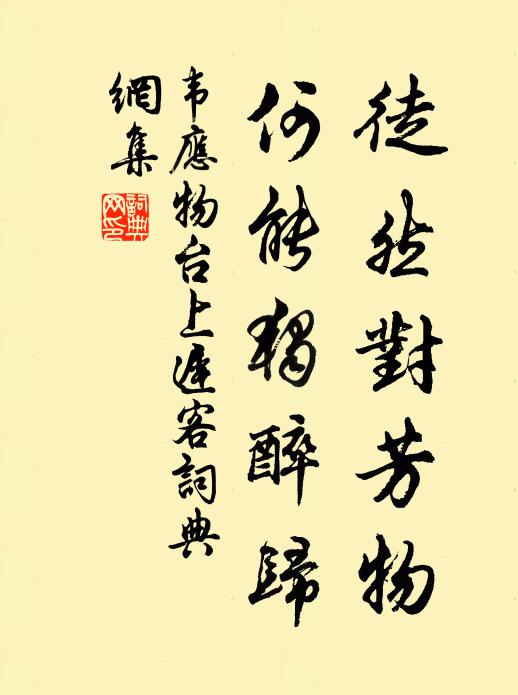 徒然對芳物
何能獨醉歸
韦應物台上遲客詞典
網集
詞典网印